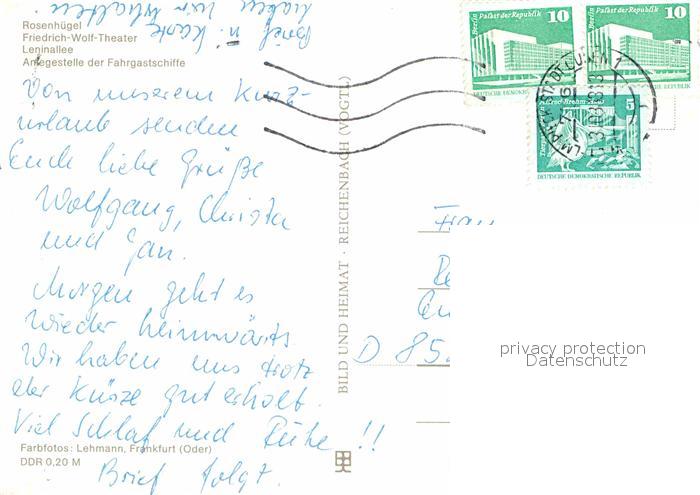 Brief u. Karte
haben wir erhalten.
Rosenhügel
Friedrich-Wolf-Theater
Leninallee
Anlegestelle der Fahrgastschiffe
Von unserem Kurz-
urlaub senden
Euch liebe Grüße
Wolfgang, Christa
und Jan.
Morgen geht es
wieder heimwärts.
Wir haben uns trotz
der Kürze gut erholt.
Viel Schlaf und Ruhe !!
Brief folgt.
Farbfotos: Lehmann, Frankfurt (Oder)
DDR 0,20 M
BILD UND HEIMAT · REICHENBACH (VOGTL)
Berlin Palast der Republik 10
DEUTSCHE DEMOK
Berlin Palast der Republik 10
5
DEUTSCHE DEMOKRATISCHE REPUBLIK
Frau
D 85
privacy protection
Datenschutz